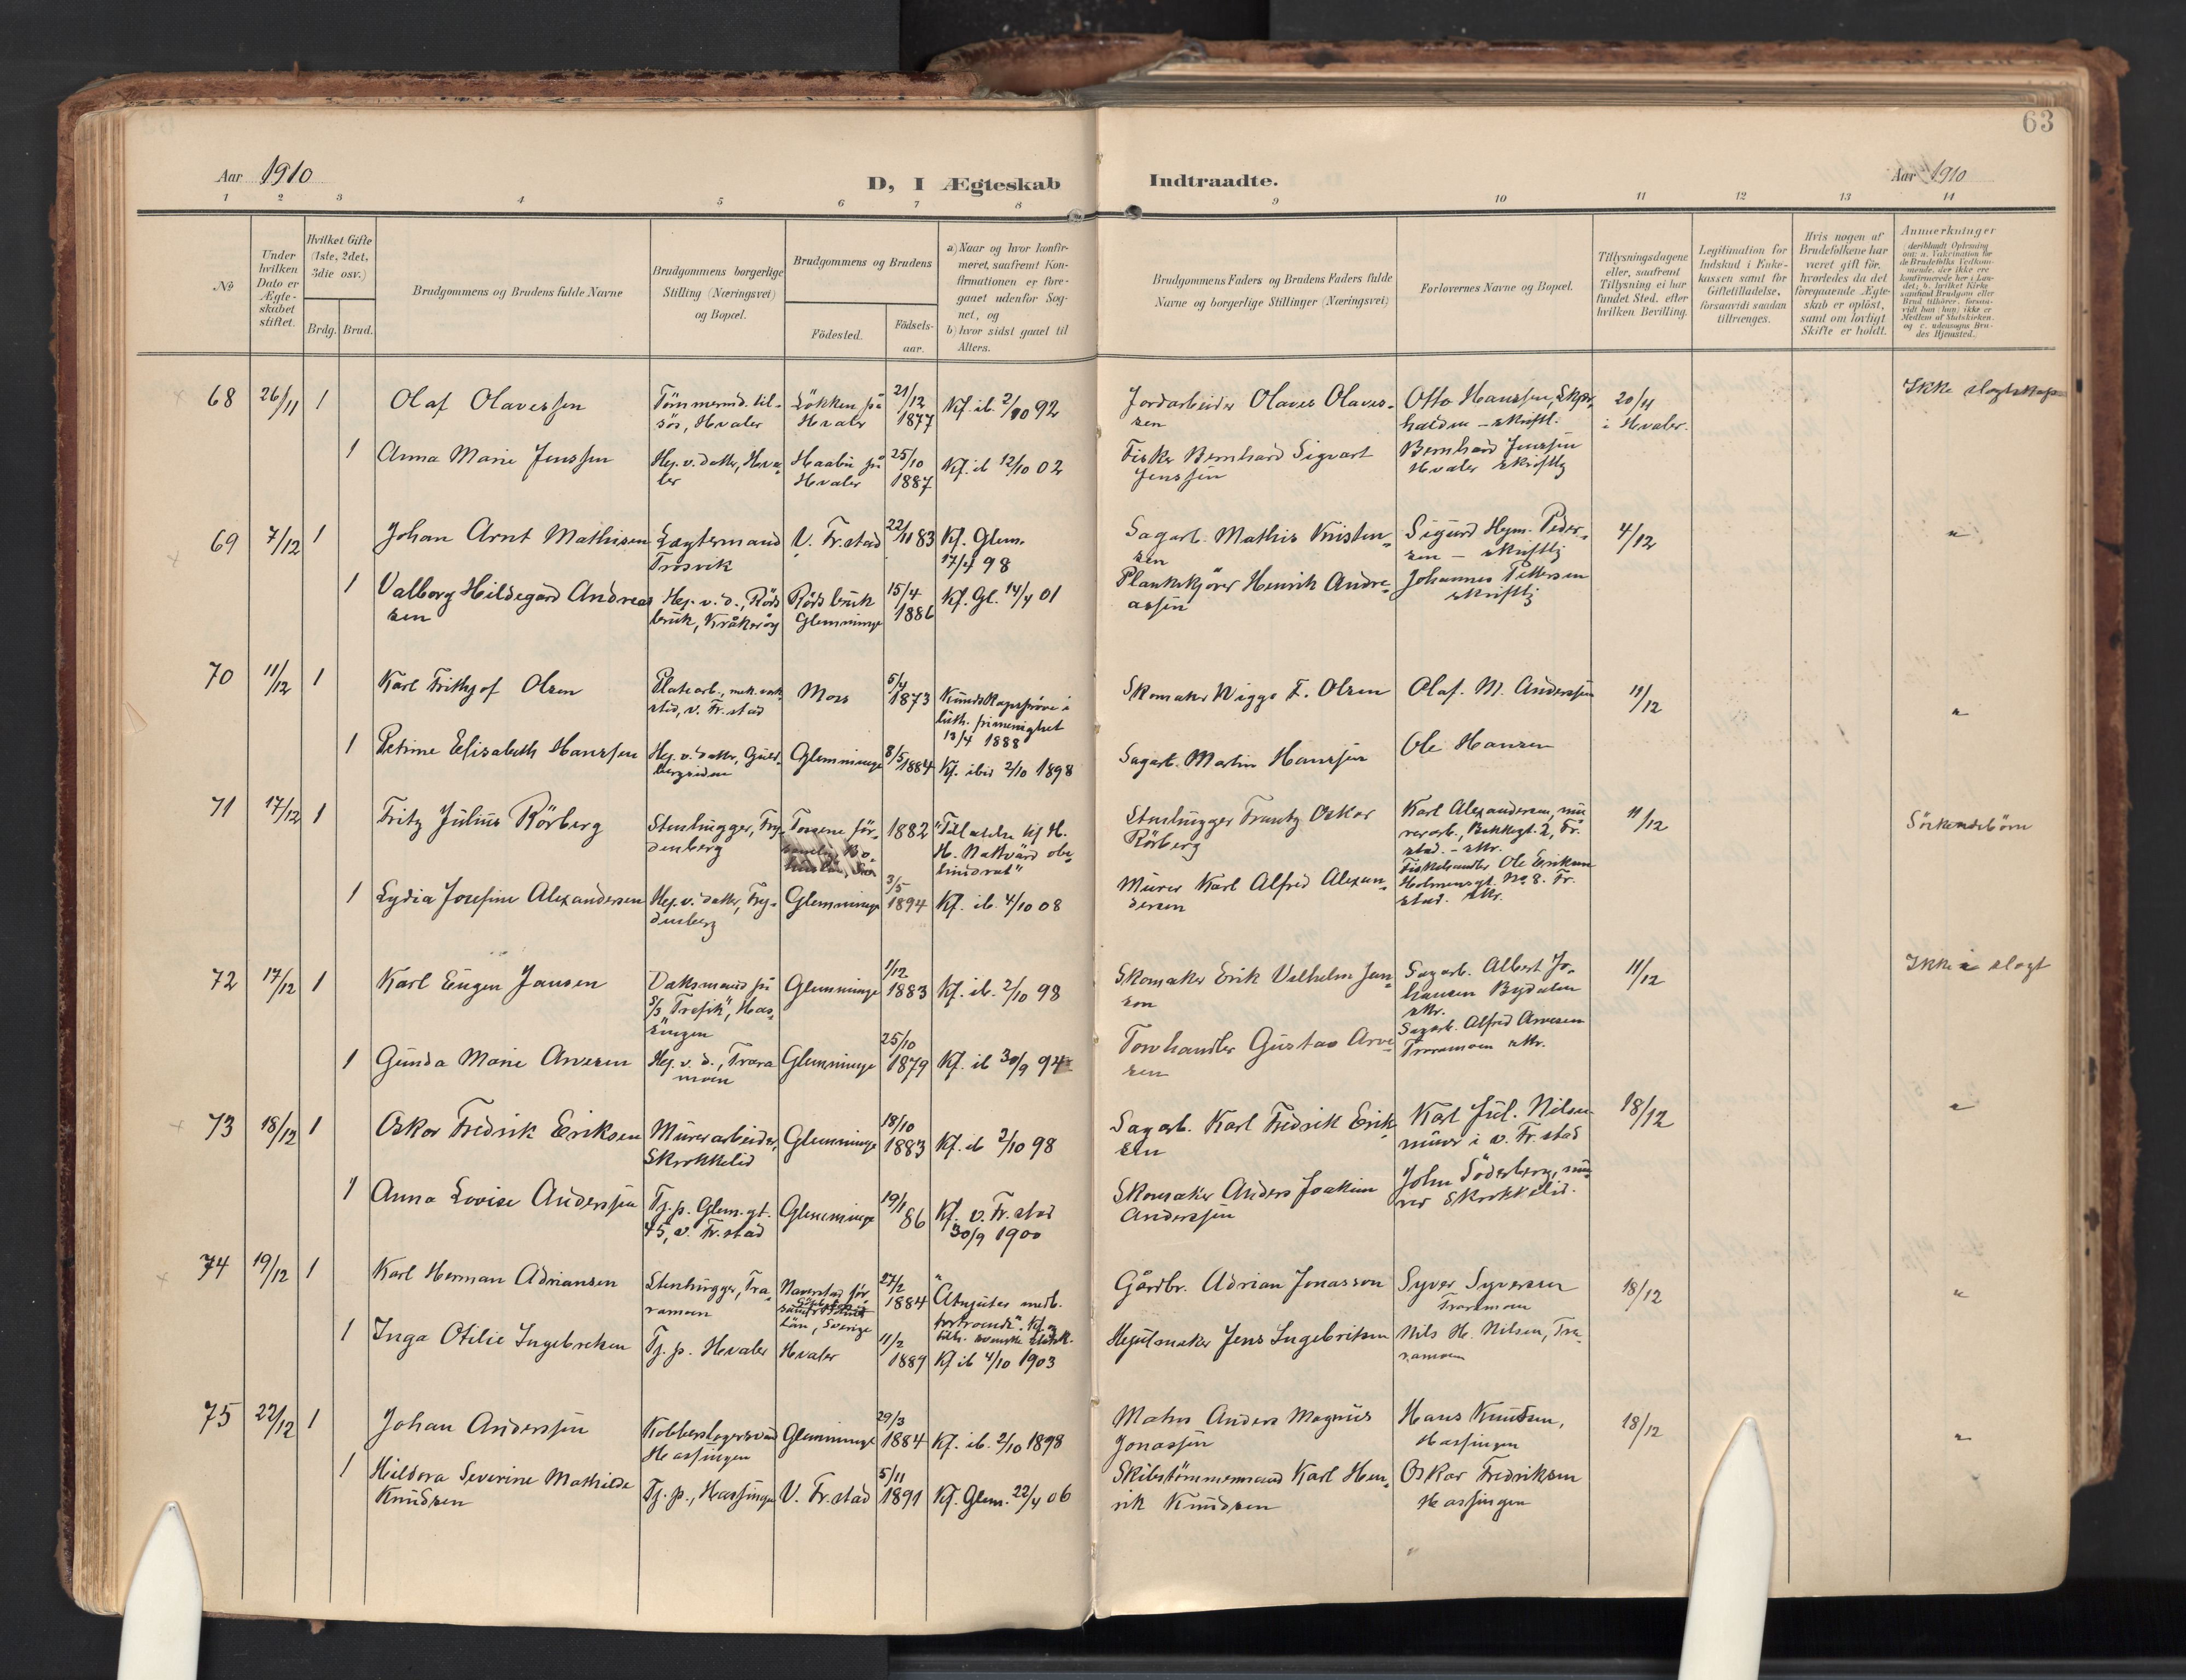 63
Aar 1910
D, I Ægteskab
Indtraadte.
Aar 1910
1 2 3 4 5 6 7 8 9 10 11 12 13 14
No
Under
hvilken
Dato er
Ægte-
skabet
stiftet.
Hvilket Gifte
(1ste, 2det,
3die osv.)
Brdg. Brud.
Brudgommens og Brudens fulde Navne
Brudgommens borgerlige
Stilling (Næringsvei)
og Bopæl.
Brudgommens og Brudens
Födested.
Födsels-
aar.
a) Naar og hvor konfir-
meret, saafremt Kon-
firmationen er fore-
gaaet udenfor Sog-
net, og
b) hvor sidst gaaet til
Alters.
Brudgommens Faders og Brudens Faders fulde
Navne og borgerlige Stillinger (Næringsvei)
Forlovernes Navne og Bopæl.
Tillysningsdagene
eller, saafremt
Tillysning ei har
fundet Sted, efter
hvilken Bevilling.
Legitimation for
Indskud i Enke-
kassen samt for
Giftetilladelse,
forsaavidt saadan
tiltrænges.
Hvis nogen af
Brudefolkene har
været gift för,
hvorledes da det
foregaaende Ægte-
skab er oplöst,
samt om lovligt
Skifte er holdt.
Anmerkninger
(deriblandt Oplysning
om: a. Vakcination for
de Brudefolks Vedkom-
mende, der ikke ere
konfirmerede her i Lan-
det; b. hvilket Kirke-
samfund Brudgom eller
Brud tilhører, forsaa-
vidt han (hun) ikke er
Medlem af Statskirken,
og c. udensogns Bru-
des Hjemsted.)
68 26/11 1 Olaf Olavessen
Tömmermd. til-
sös, Hvaler
Lökken på
Hvaler
21/12
1877
Kf. ib. 2/10 92
Jordarbeider Olaves Olaves-
sen
Otto Hanssen, Skjær-
halden - skriftl.
20/11
i Hvaler.
Ikke slegtskap
1 Anna Marie Jenssen
Hj. v. datter, Hva-
ler
Haabu på
Hvaler
25/10
1887
Kf. ib 12/10 02
Fisker Bernhard Sigvart
Jenssen
Bernhard Jenssen
Hvaler skriftlig
69 7/12 1 Johan Arnt Mathisen
Lægtermand
Trosvik
V. Fr.stad
22/11 83
Kf. Glem.
17/4 98
Sagarb. Mathis Kristen-
sen
Sigurd Hjm. Peder-
sen - skriftlig
4/12
"
1 Valborg Hildegard Andreas
sen
Hj. v. d., Röds
bruk, Kråkeröy
Röds bruk
Glemminge
15/4
1886
Kf. Gl. 14/4 01
Plankekjörer Henrik Andre-
assen
Johannes Pettersen
skriftlig
70 11/12 1 Karl Frithjof Olsen
Platearb., mek. verk
sted, v. Fr.stad
Moss
5/4
1873
Kundskapsprøve i
luth. frimenighet
13/4 1888
Skomaker Wiggo F. Olsen
Olaf. M. Anderssen
11/12
"
1 Petrine Elisabeth Hanssen
Hj. v. datter, Guld-
bergsiden
Glemminge
8/5 1884
Kf. ibid 2/10 1898
Sagarb. Martin Hanssen
Ole Hansen
71 17/12 1 Fritz Julius Rörberg
Stenhugger, Fry-
denberg
Tossene för-
1882
"Tillatelse til H.
H. Nattvärd obe-
hindrat"
Stenhugger Frantz Oskar
Rörberg
Karl Alexandersen, mu-
rerarb., Bekkegt. 2, Fr.
stad. - skr.
11/12
Sörskendebörn
1 Lydia Josefine Alexandersen
Hj. v. datter, Fry-
denberg
Glemminge
3/5
1894
Kf. ib. 4/10 08
Murer Karl Alfred Alexan-
dersen
Fiskehandler Ole Eriksen
Holmensgt. No 8. Fr.
stad. skr.
72 17/12 1 Karl Eugen Jansen
Daksmand på
S/S "Trafik", Has-
singen
Glemminge
1/12
1883
Kf. ib. 2/10 98
Skomaker Erik Vilhelm Jan-
sen
Sagarb. Albert Jo-
hansen Bydalen
skr.
11/12
Ikke i slegt
1 Gunda Marie Arvesen
Hj. v. d., Trara
moen
Glemminge
25/10
1879
Kf. ib 30/9 94
Torvhandler Gustav Arve-
sen
Sagarb. Alfred Arvesen
Traramoen skr.
73 18/12 1 Oskar Fredrik Eriksen
Murerarbeider,
Skrokkelid
Glemminge
18/10
1883
Kf. ib 2/10 98
Sagarb. Karl Fredrik Erik-
sen
Karl Jul. Nilsen
murer i v. Fr.stad
18/12
"
1 Anna Lovise Anderssen
Tj. p. Glem.gt.
45, v. Fr.stad
Glemminge
19/1
86
Kf. v. Fr.stad
30/9 1900
Skomaker Anders Joakim
Anderssen
John Söderberg, mu-
rer Skrokkelid.
74 19/12 1 Karl Herman Adriansen
Stenhugger, Tra-
ramoen
Naverstad för
län, Sverige
27/2
1884
"Åtnjuter medb.
förtroende". Kf. og
tilh. svenske statsk.
Gårdbr. Adrian Jonasson
Syver Syversen
Traramoen
18/12
"
1 Inga Otilie Ingebretsen
Tj. p. Hvaler
Hvaler
11/2
1889
Kf ib 4/10 1903
Hjulmaker Jens Ingebriksen
Nils H. Nilsen, Tra-
ramoen
75 22/12 1 Johan Anderssen
Kobberslagersvend
Hassingen
Glemminge
29/3
1884
Kf. ib. 2/10 1898
Matros Anders Magnus
Jonassen
Hans Knudsen,
Hassingen
18/12
"
1 Hildora Severine Mathilde
Knudsen
Tj. p., Hassingen
V. Fr.stad
5/11
1891
Kf. Glem. 22/4 06
Skibstömmermand Karl Hen-
rik Knudsen
Oskar Fredriksen
Hassingen